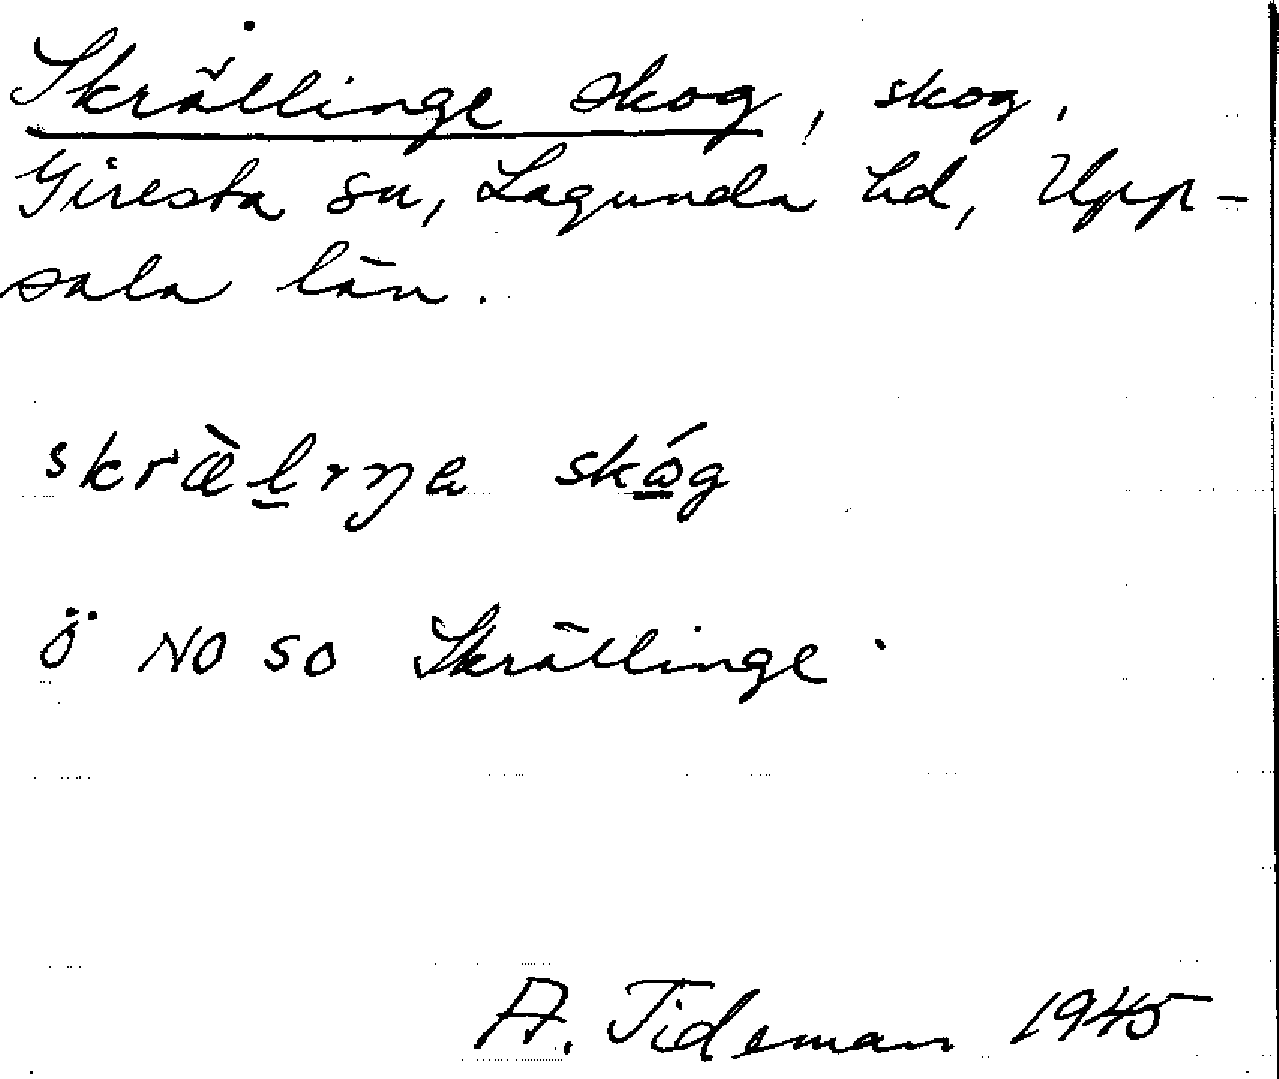 Skrällinge skog, skog.
Giresta sn, Lagunda hd, Upp-
sala län.
skræ̀l̲ıŋa skó̲g
Ö NO SO Skrällinge.
A. Tideman 1945